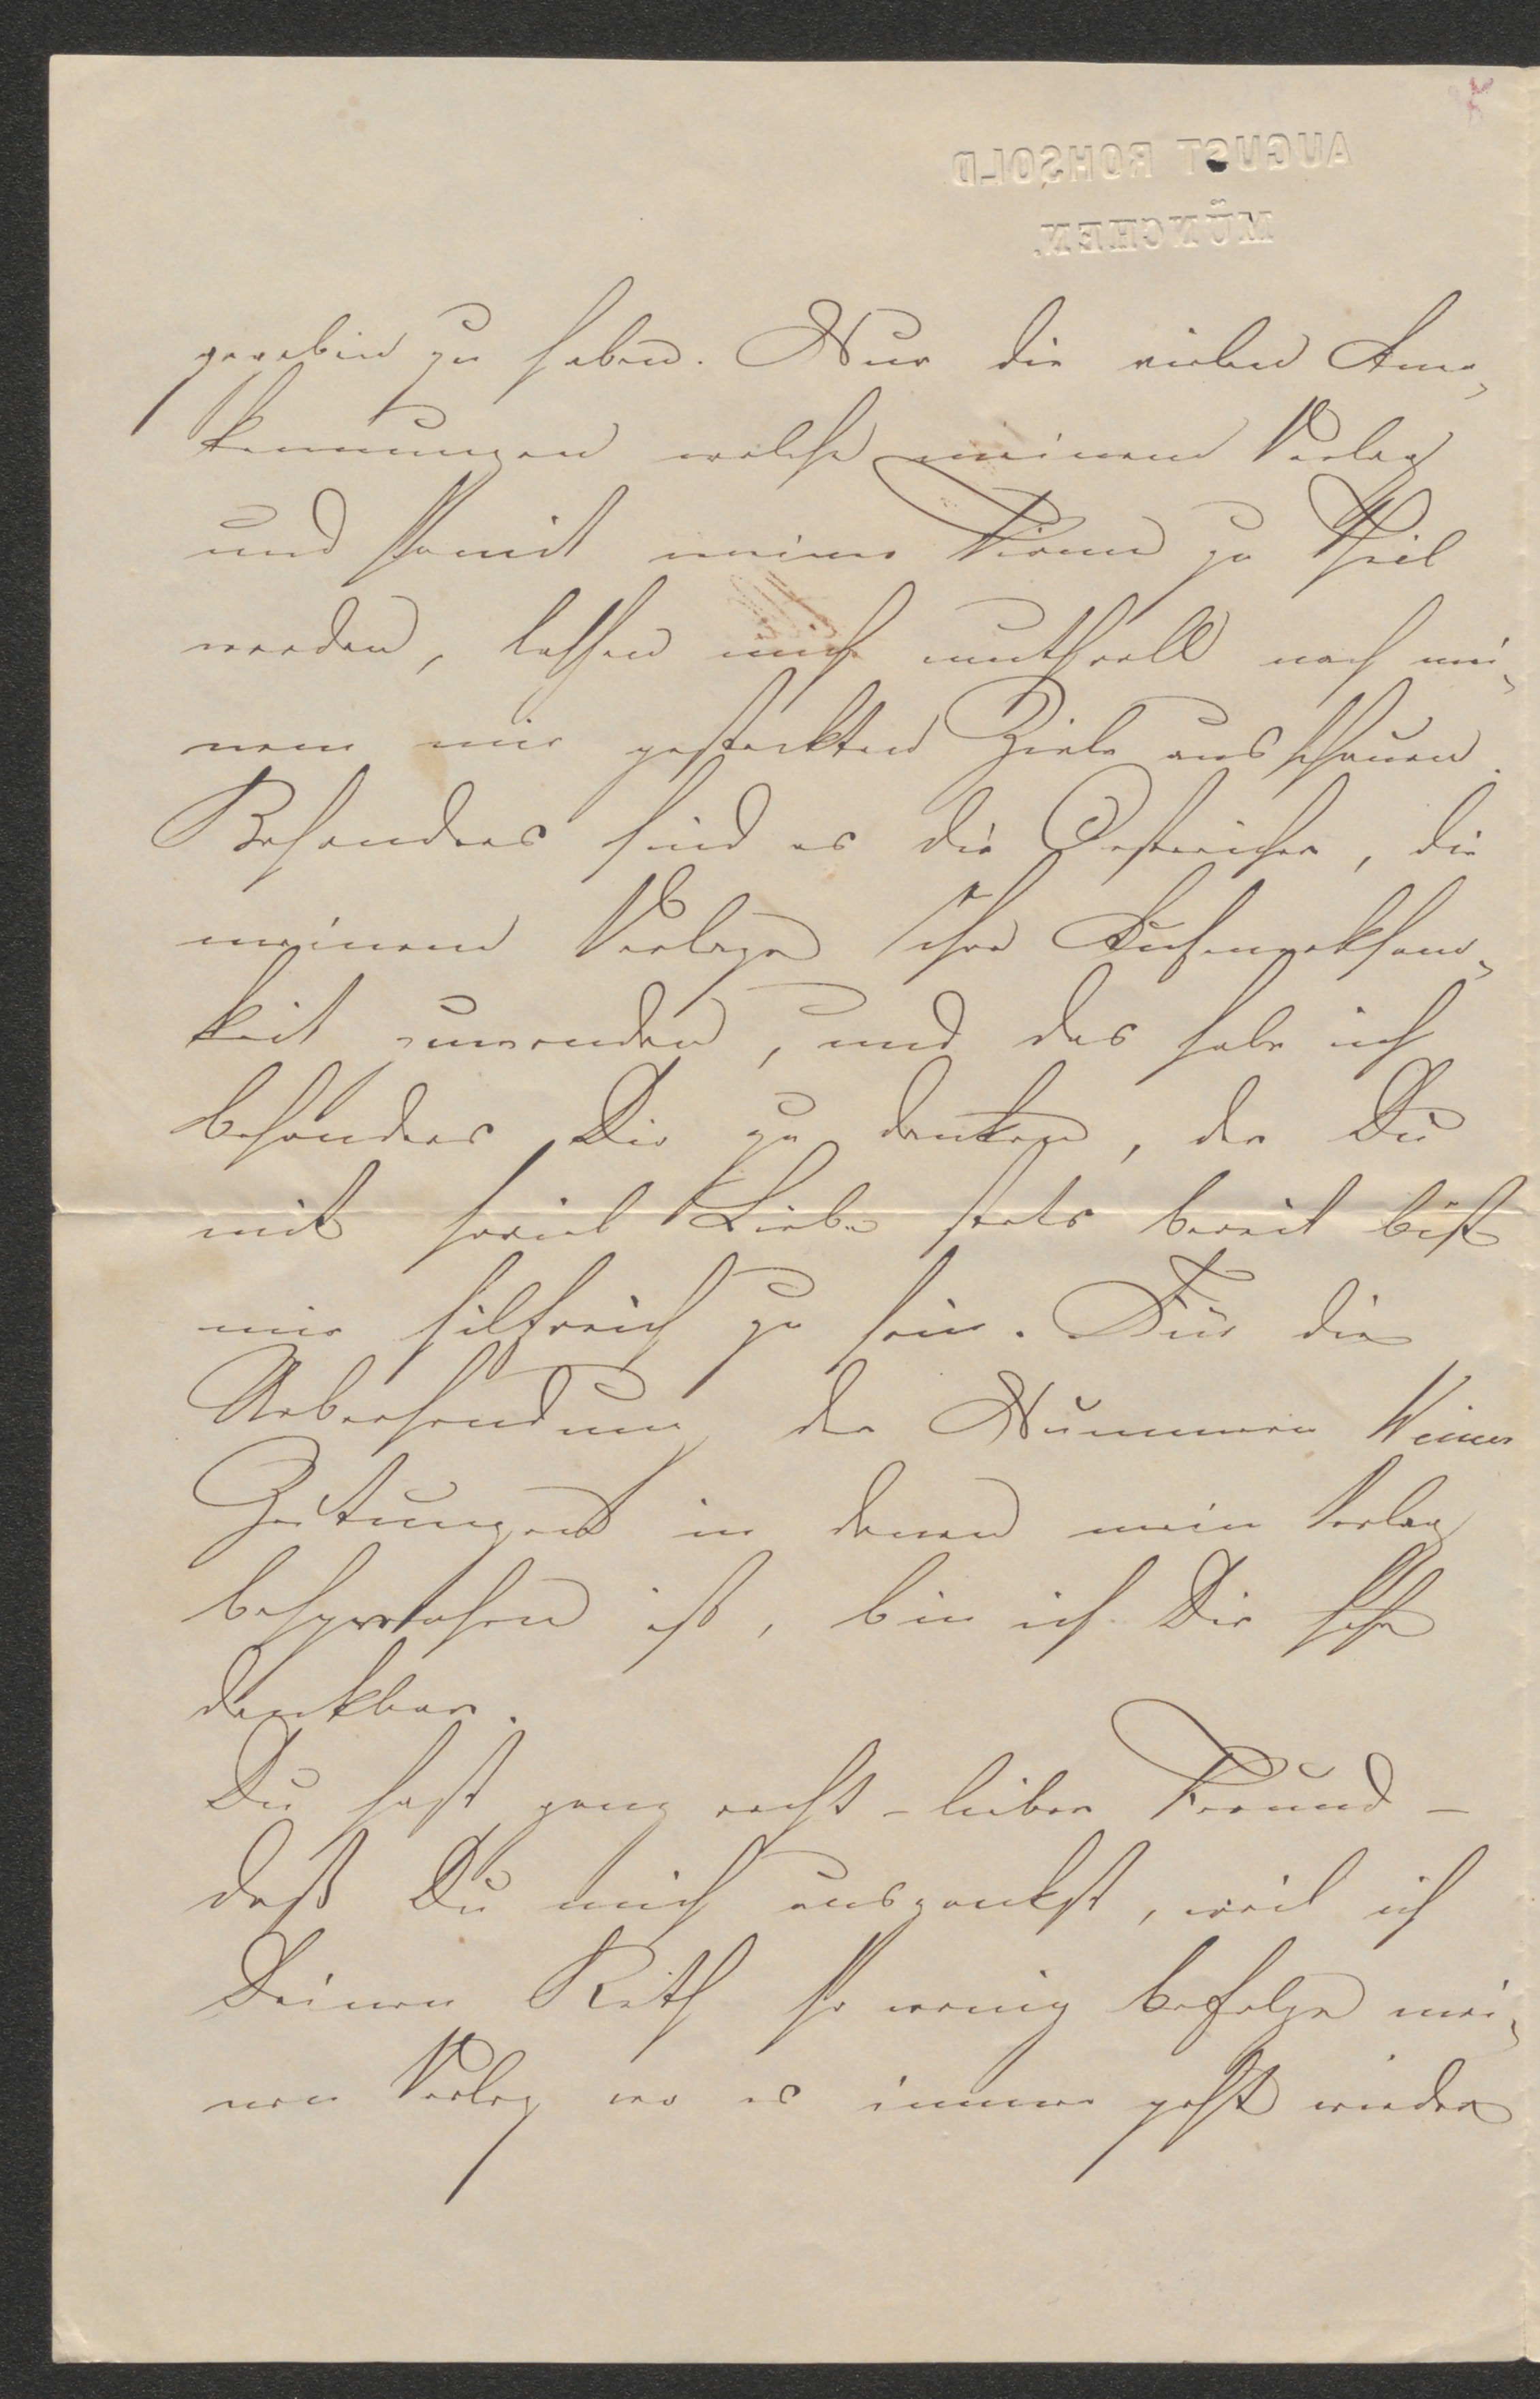 AUGUST ROHSOLD
MÜNCHEN.
gegeben zu haben. Nur die vielen Aner-
kennungen welche meinem Verlag
und somit meiner Firma zu Theil
werden, lassen mich muthvoll nach mei-
nem mir gesteckten Ziele ausschauen.
Besonders sind es die Oestreicher, die
meinem Verlage ihre Aufmerksam-
keit zuwenden, und das habe ich
besonders Dir zu danken, der Du
mit soviel Liebe stets bereit bist
mir hilfreich zu sein. Für die
Uebersendung der Nummern Wiener
Zeitungen in denen mein Verlag
besprochen ist, bin ich Dir sehr
dankbar.
Du hast ganz recht – lieber Freund –
daß Du mich auszankst, weil ich
Deinen Rath so wenig befolge mei-
nen Verlag wo es immer geht wieder